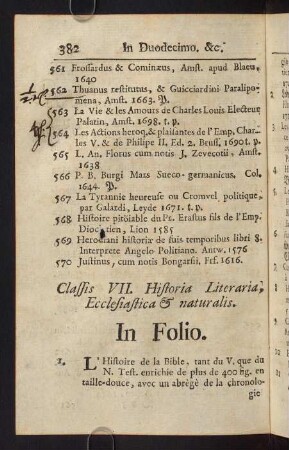 382 In Duodecimo. &c.
561 Frossardus & Cominæus, Amst. apud Blaeu,
1640
562 Thuanus restitutus, & Guicciardini Paralipo-
mena, Amst. 1663. P.
563 La Vie & les Amours de Charles Louis Electeur
Palatin, Amst. 1698. t. p.
564 Les Actions heroq. & plaisantes de l'Emp. Char-
les V. & de Philipe II. Ed. 2. Bruss. 1690t. p.
565 L. An. Florus cum notis J. Zevecotii, Amst.
1638
566 P. B. Burgi Mars Sueco-germanicus, Col.
1644. P.
567 La Tyrannie heureuse ou Cromvel politique,
par Galardi, Leyde 1671. t. p.
568 Histoire pitöiable du Pr. Erastus fils de l'Emp.
Diocletien, Lion 1585
569 Herodiani historiæ de suis temporibus libri 8.
Interprete Angelo Politiano. Antw. 1576
570 Justinus, cum notis Bongarsii, Fcf. 1616.
Classis VII. Historia Literaria,
Ecclesiastica & naturalis.
In Folio.
1. L'Histoire de la Bible, tant du V. que du
N. Test. enrichie de plus de 400 fig. en
taille-douce, avec un abrégé de la chronolo-
gie